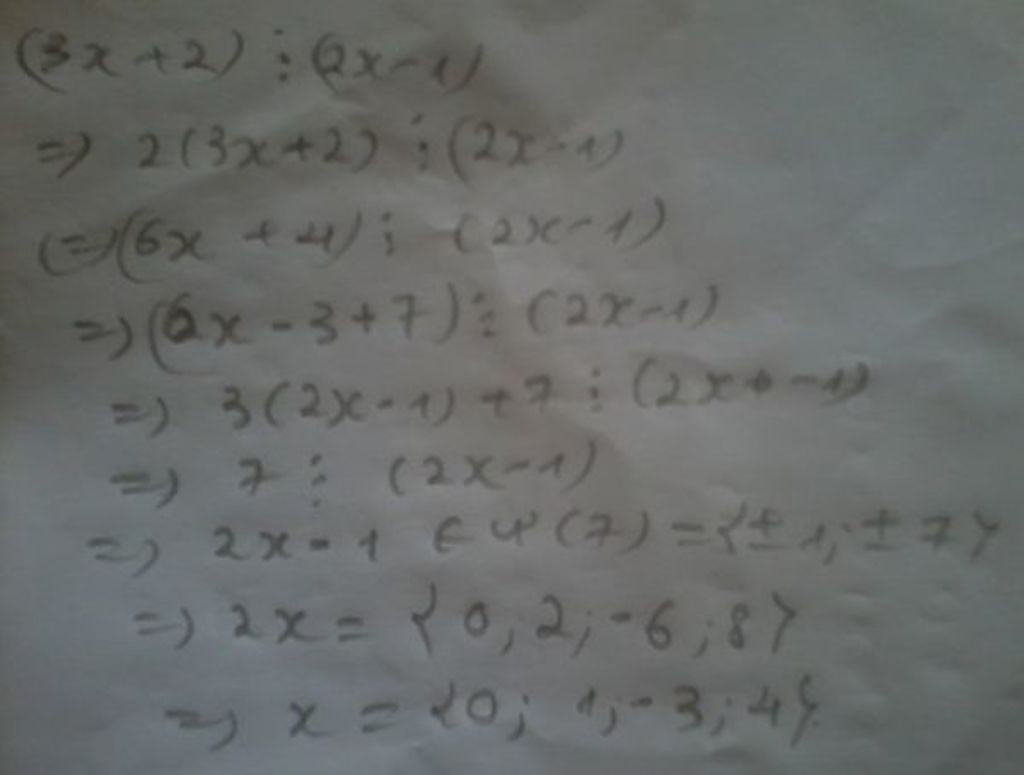 (3x+2) ⋮ (2x-1)
=> 2(3x+2) ⋮ (2x-1)
(=> (6x + 4) ⋮ (2x-1)
=> (6x - 3 + 7) ⋮ (2x-1)
=> 3(2x-1) + 7 ⋮ (2x+ -1)
=> 7 ⋮ (2x-1)
=> 2x-1 ∈ Ư(7) = {±1; ±7}
=> 2x = {0; 2; -6; 8}
=> x = {0; 1; -3; 4}